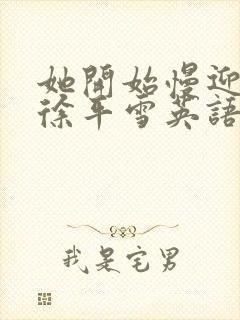 她開始慢迎
徐平雪英語
我是宅男